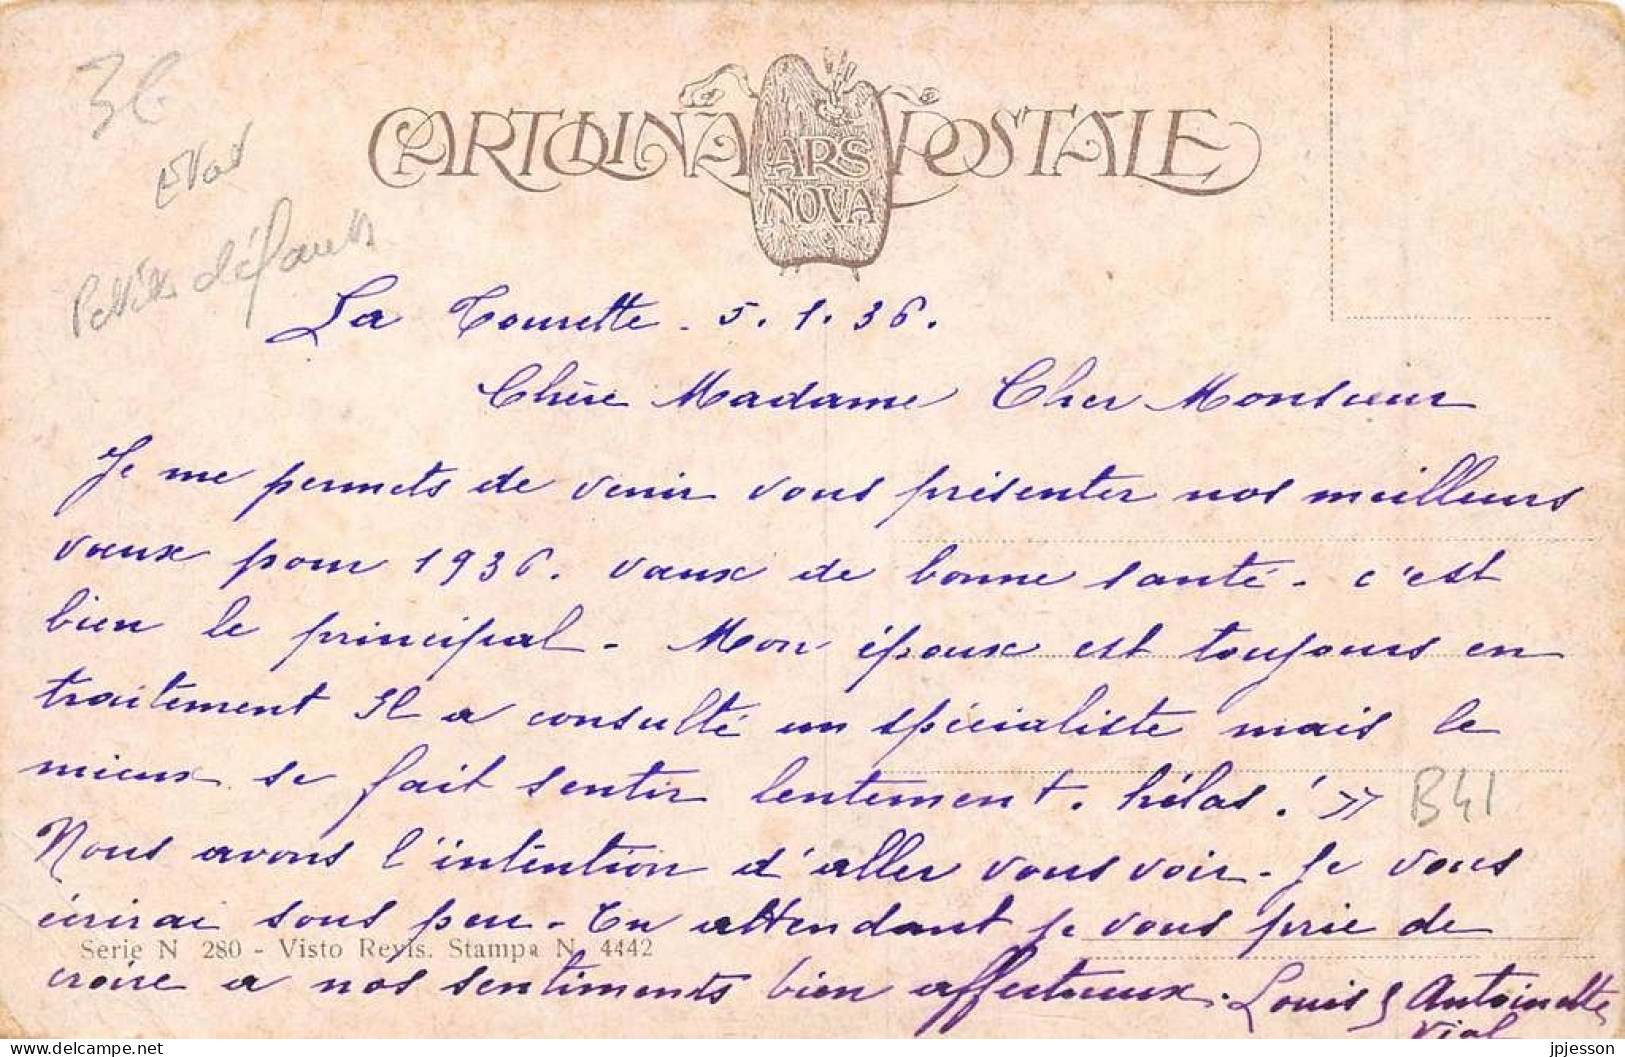 36
Petits défauts
CARTOLINA POSTALE
ARS
NOVA
La Tourette - 5.1.36.
Chère Madame Cher Monsieur
Je me permets de venir vous présenter nos meilleurs
vœux pour 1936. vœux de bonne santé - c'est
bien le principal - Mon époux est toujours en
traitement Il a consulté un spécialiste mais le
mieux se fait sentir lentement. hélas! »
B41
Nous avons l'intention d'aller vous voir - Je vous
écrirai sous peu - En attendant je vous prie de
Serie N 280 - Visto Revis. Stampa N. 4442
croire a nos sentiments bien affectueux. Louis & Antoinette
Vial
jpjesson